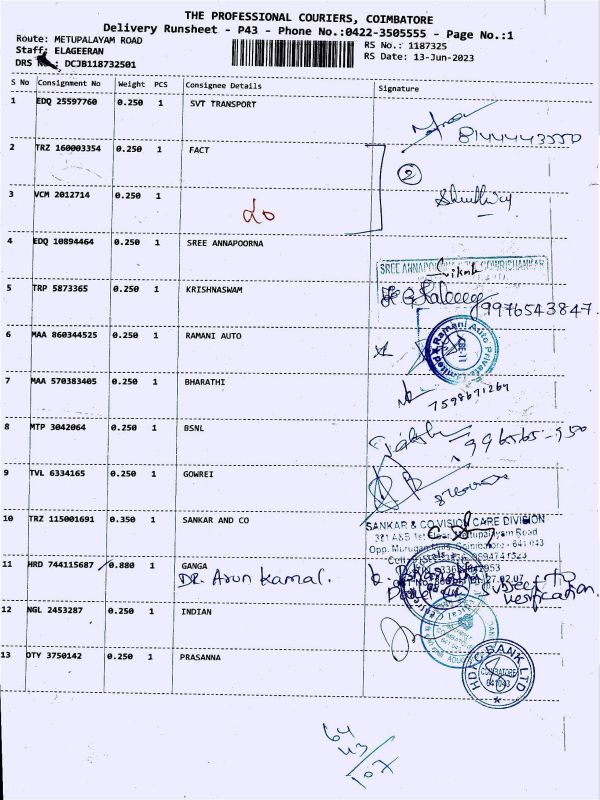 THE PROFESSIONAL COURIERS, COIMBATORE
Delivery Runsheet - P43 - Phone No.:0422-3505555 - Page No.:1
Route: METUPALAYAM ROAD
RS No.: 1187325
Staff: ELAGEERAN
RS Date: 13-Jun-2023
DRS : DCJB118732501
S No Consignment No Weight PCS Consignee Details Signature
1 EDQ 25597760 0.250 1 SVT TRANSPORT
8144443550
2 TRZ 160003354 0.250 1 FACT
2
3 VCM 2012714 0.250 1
4 EDQ 10894464 0.250 1 SREE ANNAPOORNA
5 TRP 5873365 0.250 1 KRISHNASWAM
9976543847.
6 MAA 860344525 0.250 1 RAMANI AUTO
Ramani Auto Private Limited
7 MAA 570383405 0.250 1 BHARATHI
7598671264
8 MTP 3042064 0.250 1 BSNL
9 TVL 6334165 0.250 1 GOWREI
10 TRZ 115001691 0.350 1 SANKAR AND CO
SANKAR & CO VISION CARE DIVISION
11 HRD 744115687 0.880 1 GANGA
DR. Arun Kamal.
Subject to
verification.
12 NGL 2453287 0.250 1 INDIAN
13 OTY 3750142 0.250 1 PRASANNA
BANK LTD
COIMBATORE
641043
64
43
107